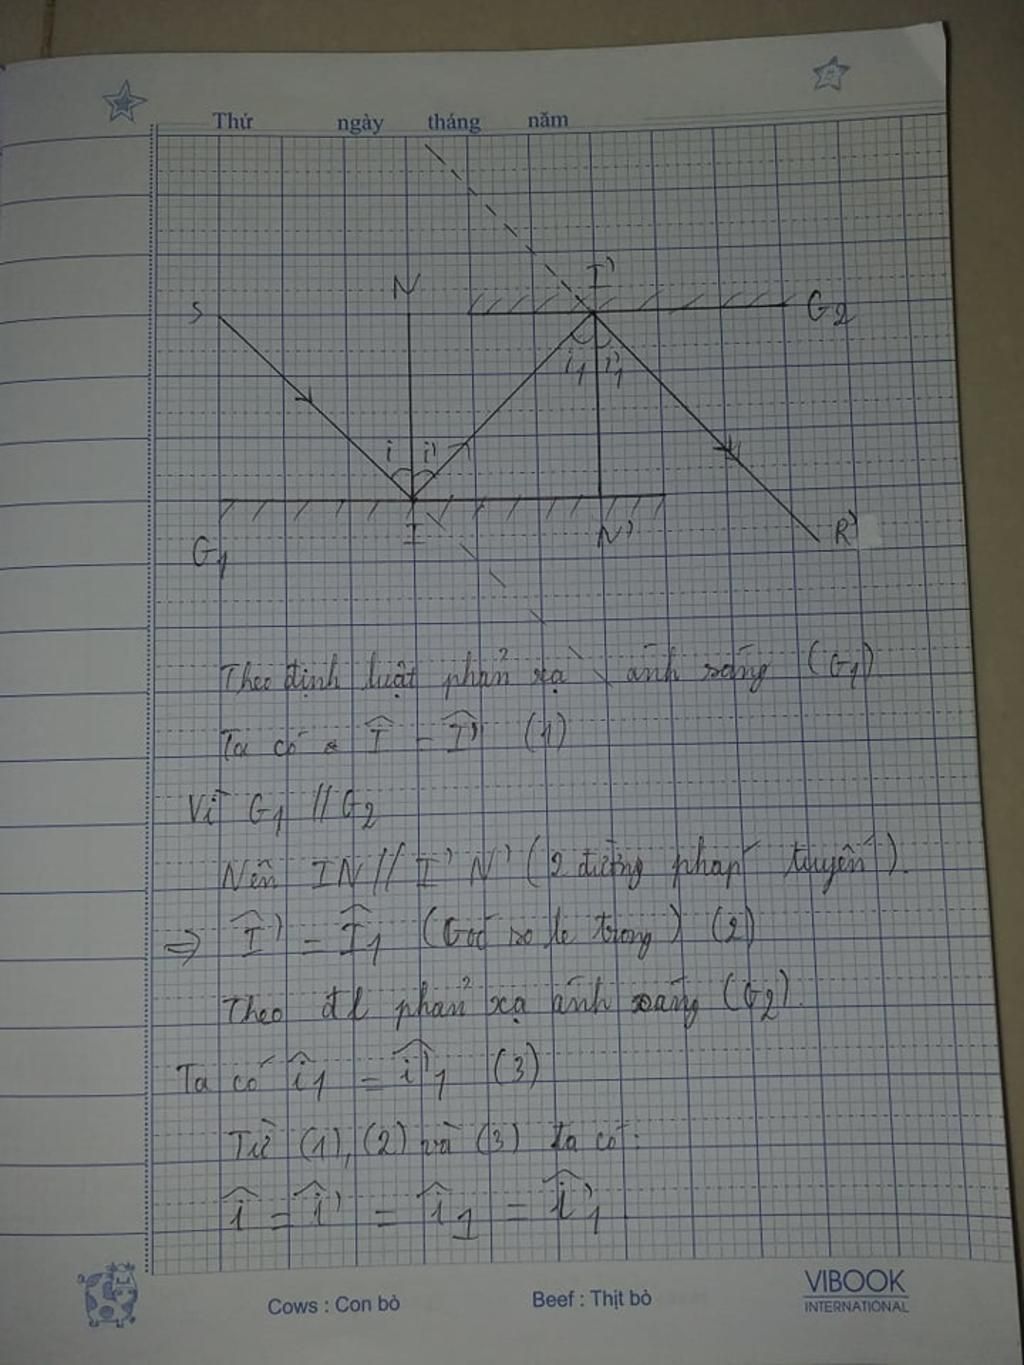 Thứ ngày tháng năm
I'
N
S
G2
i1 i'1
i i'
I
N'
R'
G1
Theo định luật phản xạ ánh sáng (G1)
Ta có I = I' (1)
Vì G1 // G2
Nên IN // I'N' (2 đường pháp tuyến).
=> I' = I1 (Góc so le trong) (2)
Theo đl phản xạ ánh sáng (G2).
Ta có i1 = i'1 (3)
Từ (1), (2) và (3) ta có:
i = i' = i1 = i'1
Cows : Con bò
Beef : Thịt bò
VIBOOK
INTERNATIONAL